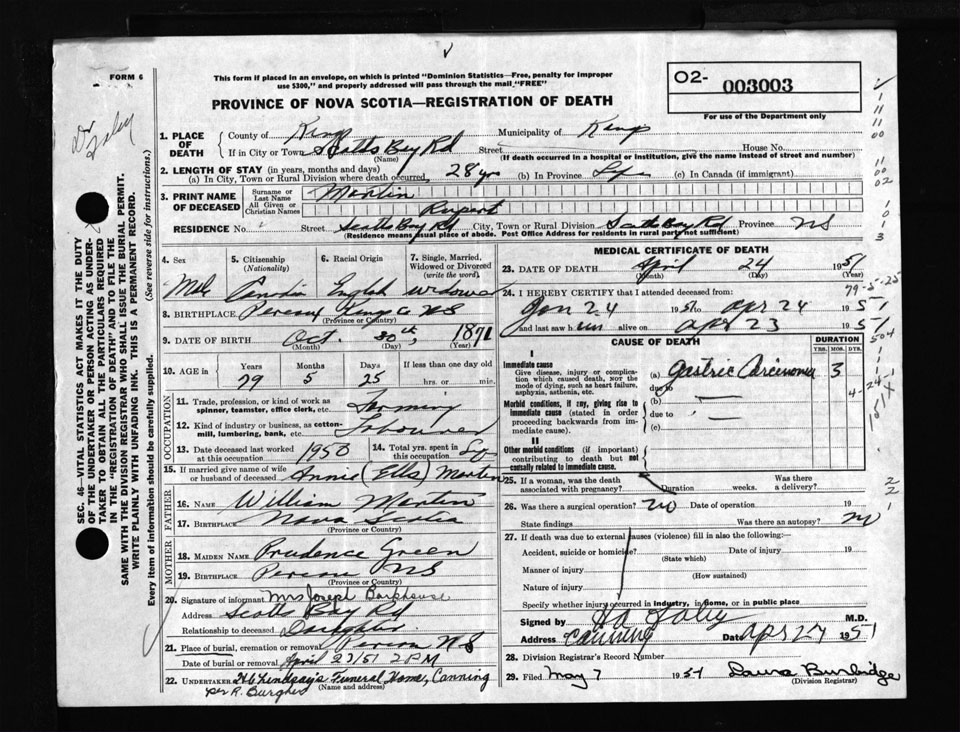 FORM 6
This form if placed in an envelope, on which is printed "Dominion Statistics—Free, penalty for improper
use $300," and properly addressed will pass through the mail "FREE"
PROVINCE OF NOVA SCOTIA—REGISTRATION OF DEATH
02- 003003
For use of the Department only
Dr Foley
SEC. 46—VITAL STATISTICS ACT MAKES IT THE DUTY
OF THE UNDERTAKER OR PERSON ACTING AS UNDER-
TAKER TO OBTAIN ALL THE PARTICULARS REQUIRED
IN THE "REGISTRATION OF DEATH" AND TO FILE THE
SAME WITH THE DIVISION REGISTRAR WHO SHALL ISSUE THE BURIAL PERMIT.
WRITE PLAINLY WITH UNFADING INK. THIS IS A PERMANENT RECORD.
Every item of information should be carefully supplied. (See reverse side for instructions.)
1. PLACE OF DEATH
County of Kings Municipality of Kings
If in City or Town Scotts Bay Rd Street House No.
(Name) (If death occurred in a hospital or institution, give the name instead of street and number)
2. LENGTH OF STAY (in years, months and days)
(a) In City, Town or Rural Division where death occurred 28 yrs (b) In Province Life (c) In Canada (if immigrant)
3. PRINT NAME OF DECEASED
Surname or Last Name Martin
All Given or Christian Names Rupert
RESIDENCE No. Street Scotts Bay Rd City, Town or Rural Division Scotts Bay Rd Province NS
(Residence means usual place of abode. Post Office Address for residents in rural parts not sufficient)
4. Sex
Male
5. Citizenship (Nationality)
Canadian
6. Racial Origin
English
7. Single, Married, Widowed or Divorced (write the word)
Widower
8. BIRTHPLACE Pereau Kings Co NS
(Province or Country)
9. DATE OF BIRTH Oct. 30th, 1871
(Month) (Day) (Year)
10. AGE in Years Months Days If less than one day old
79 5 25 hrs. or min.
OCCUPATION
11. Trade, profession or kind of work as
spinner, teamster, office clerk, etc. Farming
12. Kind of industry or business, as cotton-
mill, lumbering, bank, etc. Labourer
13. Date deceased last worked at this occupation 1950
14. Total yrs. spent in this occupation 50
15. If married give name of wife
or husband of deceased Annie (Ells) Martin
FATHER
16. NAME William Martin
17. BIRTHPLACE Nova Scotia
(Province or Country)
MOTHER
18. MAIDEN NAME Prudence Green
19. BIRTHPLACE Pereau NS
(Province or Country)
20. Signature of informant Mrs Joseph Barkhouse
Address Scotts Bay Rd
Relationship to deceased Daughter
21. Place of burial, cremation or removal Pereau NS
Date of burial or removal April 27/51 2 PM
22. UNDERTAKER H.C. Lindsay's Funeral Home, Canning
per R. Burgher (Name and address)
MEDICAL CERTIFICATE OF DEATH
23. DATE OF DEATH April 24 1951
(Month) (Day) (Year)
24. I HEREBY CERTIFY that I attended deceased from:
Jan 24 1951 to Apr 24 1951
and last saw him alive on Apr 23 1951
CAUSE OF DEATH
DURATION
YRS. MOS. DYS.
I
Immediate cause
Give disease, injury or complica-
tion which caused death, NOT the
mode of dying, such as heart failure,
asphyxia, asthenia, etc.
(a) Gastric Carcinoma 3
due to
(b)
due to
(c)
Morbid conditions, if any, giving rise to
immediate cause (stated in order
proceeding backwards from im-
mediate cause).
II
Other morbid conditions (if important)
contributing to death but not
causally related to immediate cause.
25. If a woman, was the death
associated with pregnancy? Duration weeks. Was there a delivery?
26. Was there a surgical operation? No Date of operation 19
State findings Was there an autopsy? No
27. If death was due to external causes (violence) fill in also the following:
Accident, suicide or homicide? Date of injury 19
(State which)
Manner of injury
(How sustained)
Nature of injury
Specify whether injury occurred in industry, in home, or in public place
Signed by H A Foley M.D.
Address Canning Date Apr 27 1951
28. Division Registrar's Record Number
29. Filed May 7 1951 Laura Burbidge
(Division Registrar)
79-5-25